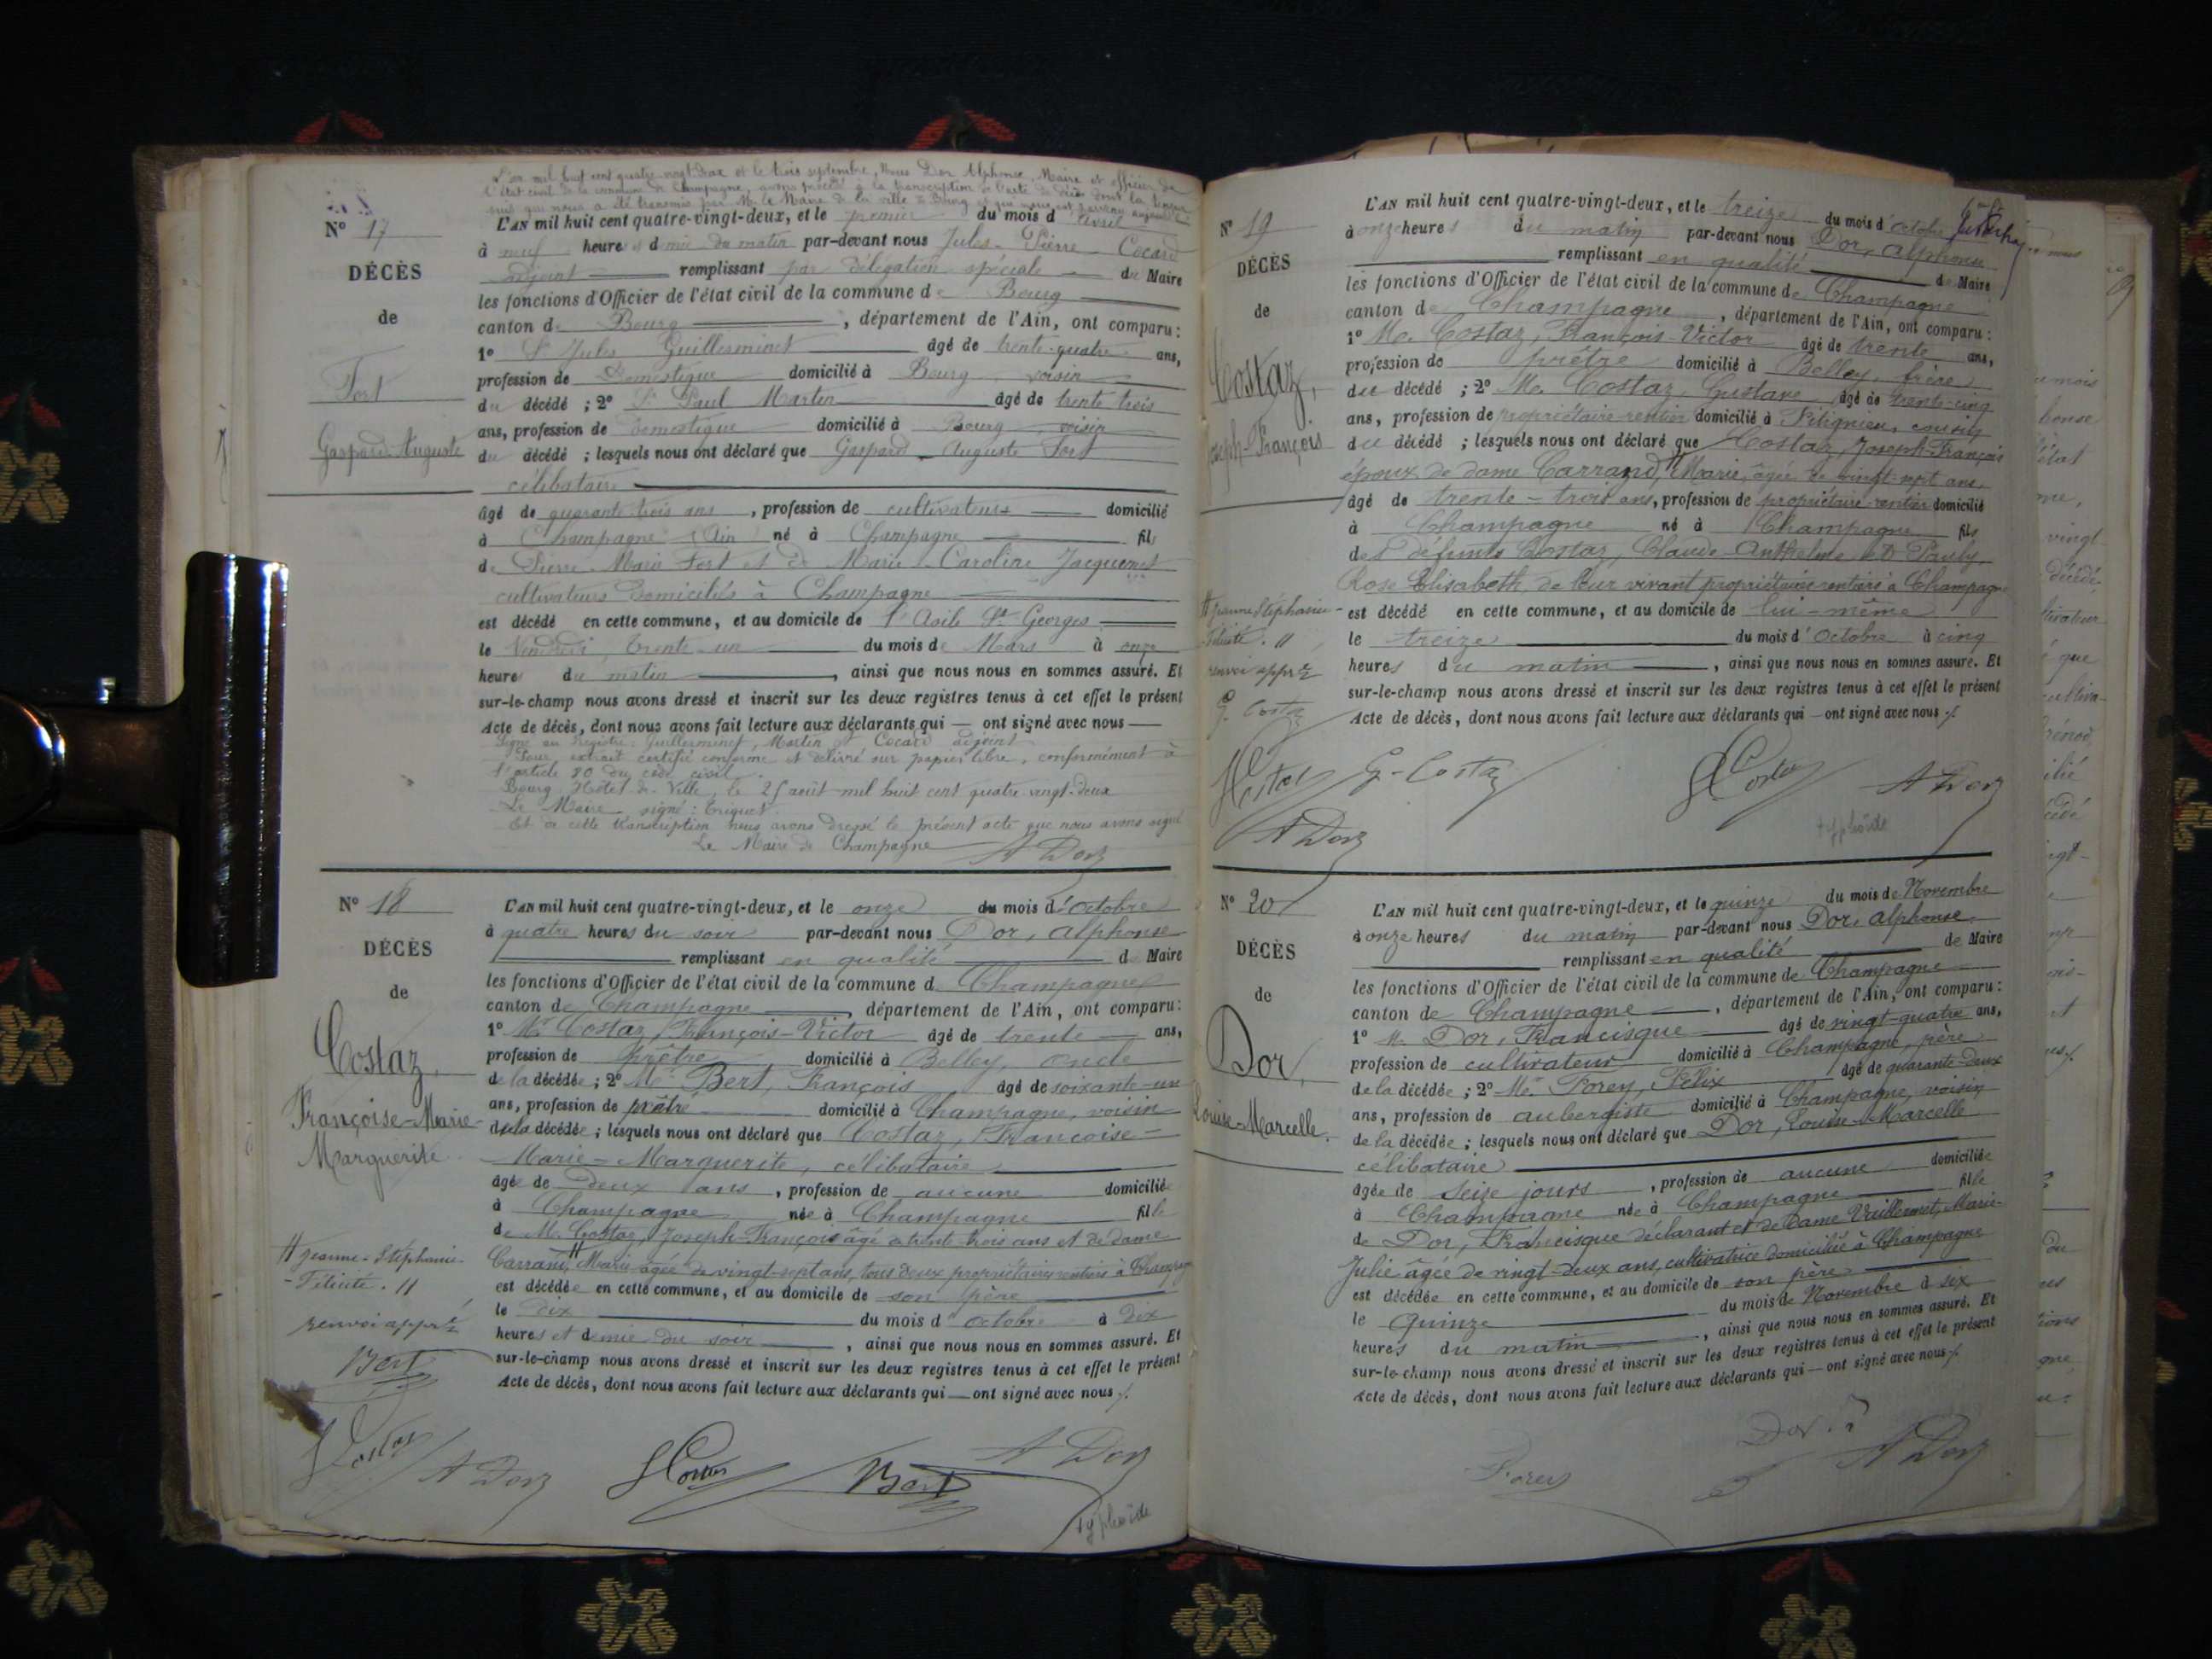 L'an mil huit cent quatre-vingt-deux et le trois septembre, Nous Dor Alphonse, Maire et officier de
l'état civil de la commune de Champagne, avons procédé à la transcription de l'acte de décès dont la teneur
suit qui nous a été transmis par M. le Maire de la ville de Bourg et qui nous est parvenu aujourd'hui
N° 17
DÉCÈS
de
Fort
Gaspard Auguste
L'AN mil huit cent quatre-vingt-deux, et le premier du mois d'avril
à neuf heures et demie du matin par-devant nous Jules-Pierre Cocard
adjoint remplissant par délégation spéciale du Maire
les fonctions d'Officier de l'état civil de la commune de Bourg
canton de Bourg, département de l'Ain, ont comparu:
1° Sr Jules Guillerminet âgé de trente-quatre ans,
profession de Domestique domicilié à Bourg, voisin
du décédé ; 2° Sr Paul Martin âgé de trente trois
ans, profession de Domestique domicilié à Bourg, voisin
du décédé ; lesquels nous ont déclaré que Gaspard Auguste Fort
célibataire
âgé de quarante-trois ans, profession de cultivateur domicilié
à Champagne (Ain) né à Champagne fils
de Pierre Marie Fort et de Marie-Caroline Jacquenet
cultivateurs domiciliés à Champagne
est décédé en cette commune, et au domicile de l'Asile St-Georges
le Vendredi, trente-un du mois de Mars à onze
heures du matin, ainsi que nous nous en sommes assuré. Et
sur-le-champ nous avons dressé et inscrit sur les deux registres tenus à cet effet le présent
Acte de décès, dont nous avons fait lecture aux déclarants qui — ont signé avec nous —
Signé au Registre: Guillerminet, Martin et Cocard adjoint
Pour extrait certifié conforme et délivré sur papier libre, conformément à
l'article 80 du code civil.
Bourg, Hôtel de Ville, le 25 août mil huit cent quatre vingt-deux
Le Maire signé :
Et de cette transcription nous avons dressé le présent acte que nous avons signé
Le Maire de Champagne A Dor
N° 18
DÉCÈS
de
Costaz,
Françoise-Marie-
Marguerite.
L'AN mil huit cent quatre-vingt-deux, et le onze du mois d'octobre
à quatre heures du soir par-devant nous Dor, alphonse
remplissant en qualité de Maire
les fonctions d'Officier de l'état civil de la commune de Champagne
canton de Champagne, département de l'Ain, ont comparu:
1° Mr Costaz, François-Victor âgé de trente ans,
profession de prêtre domicilié à Belley, oncle
de la décédée; 2° Mr Bert, François âgé de soixante-un
ans, profession de prêtre domicilié à Champagne, voisin
de la décédée; lesquels nous ont déclaré que Costaz, Françoise-
Marie-Marguerite, célibataire
âgée de deux ans, profession de aucune domiciliée
à Champagne née à Champagne fille
de M. Costaz, Joseph-François âgé de trente-trois ans et de dame
Carrand, # Marie âgée de vingt-sept ans, tous deux propriétaires rentiers à Champagne
est décédée en cette commune, et au domicile de son père
le dix du mois d'octobre à dix
heures et demie du soir, ainsi que nous nous en sommes assuré. Et
sur-le-champ nous avons dressé et inscrit sur les deux registres tenus à cet effet le présent
Acte de décès, dont nous avons fait lecture aux déclarants qui — ont signé avec nous ./.
# jeanne-Stéphanie-
-Félicité. //
renvoi appr.
Bert
Costaz A Dor Costaz Bert A Dor
typhoïde
N° 19
DÉCÈS
de
Costaz,
Joseph-François
L'AN mil huit cent quatre-vingt-deux, et le treize du mois d'octobre
à onze heures du matin par-devant nous Dor, alphonse
remplissant en qualité de Maire
les fonctions d'Officier de l'état civil de la commune de Champagne
canton de Champagne, département de l'Ain, ont comparu:
1° Mr. Costaz, François-Victor âgé de trente ans,
profession de prêtre domicilié à Belley, frère
du décédé ; 2° Mr. Costaz, Gustave âgé de trente-cinq
ans, profession de propriétaire-rentier domicilié à Virignieu, cousin
du décédé ; lesquels nous ont déclaré que Costaz, Joseph-François
époux de dame Carrand, # Marie, âgée de vingt-sept ans,
âgé de trente-trois ans, profession de propriétaire-rentier domicilié
à Champagne né à Champagne fils
des défunts Costaz, Claude-Anthelme et Pauly,
Rose Elisabeth, de leur vivant propriétaires rentiers à Champagne
est décédé en cette commune, et au domicile de lui-même
le treize du mois d'octobre à cinq
heures du matin, ainsi que nous nous en sommes assuré. Et
sur-le-champ nous avons dressé et inscrit sur les deux registres tenus à cet effet le présent
Acte de décès, dont nous avons fait lecture aux déclarants qui — ont signé avec nous ./.
# jeanne Stéphanie-
Félicité. //
renvoi appr.
G. Costaz
Costaz G-Costaz Costaz A Dor
A Dor
typhoïde
N° 20
DÉCÈS
de
Dor,
Louise-Marcelle.
L'AN mil huit cent quatre-vingt-deux, et le quinze du mois de Novembre
à onze heures du matin par-devant nous Dor, alphonse.
remplissant en qualité de Maire
les fonctions d'Officier de l'état civil de la commune de Champagne
canton de Champagne, département de l'Ain, ont comparu:
1° M. Dor, Francisque âgé de vingt-quatre ans,
profession de cultivateur domicilié à Champagne, père
de la décédée ; 2° Mr. Forey, Félix âgé de quarante-deux
ans, profession de aubergiste domicilié à Champagne, voisin
de la décédée ; lesquels nous ont déclaré que Dor, Louise-Marcelle
célibataire
âgée de seize jours, profession de aucune domiciliée
à Champagne née à Champagne fille
de Dor, Francisque déclarant et de Dame Vuillermet, Marie-
Julie âgée de vingt-deux ans, cultivatrice domiciliée à Champagne
est décédée en cette commune, et au domicile de son père
le quinze du mois de Novembre à six
heures du matin, ainsi que nous nous en sommes assuré. Et
sur-le-champ nous avons dressé et inscrit sur les deux registres tenus à cet effet le présent
Acte de décès, dont nous avons fait lecture aux déclarants qui — ont signé avec nous ./.
Dor
Forey A Dor